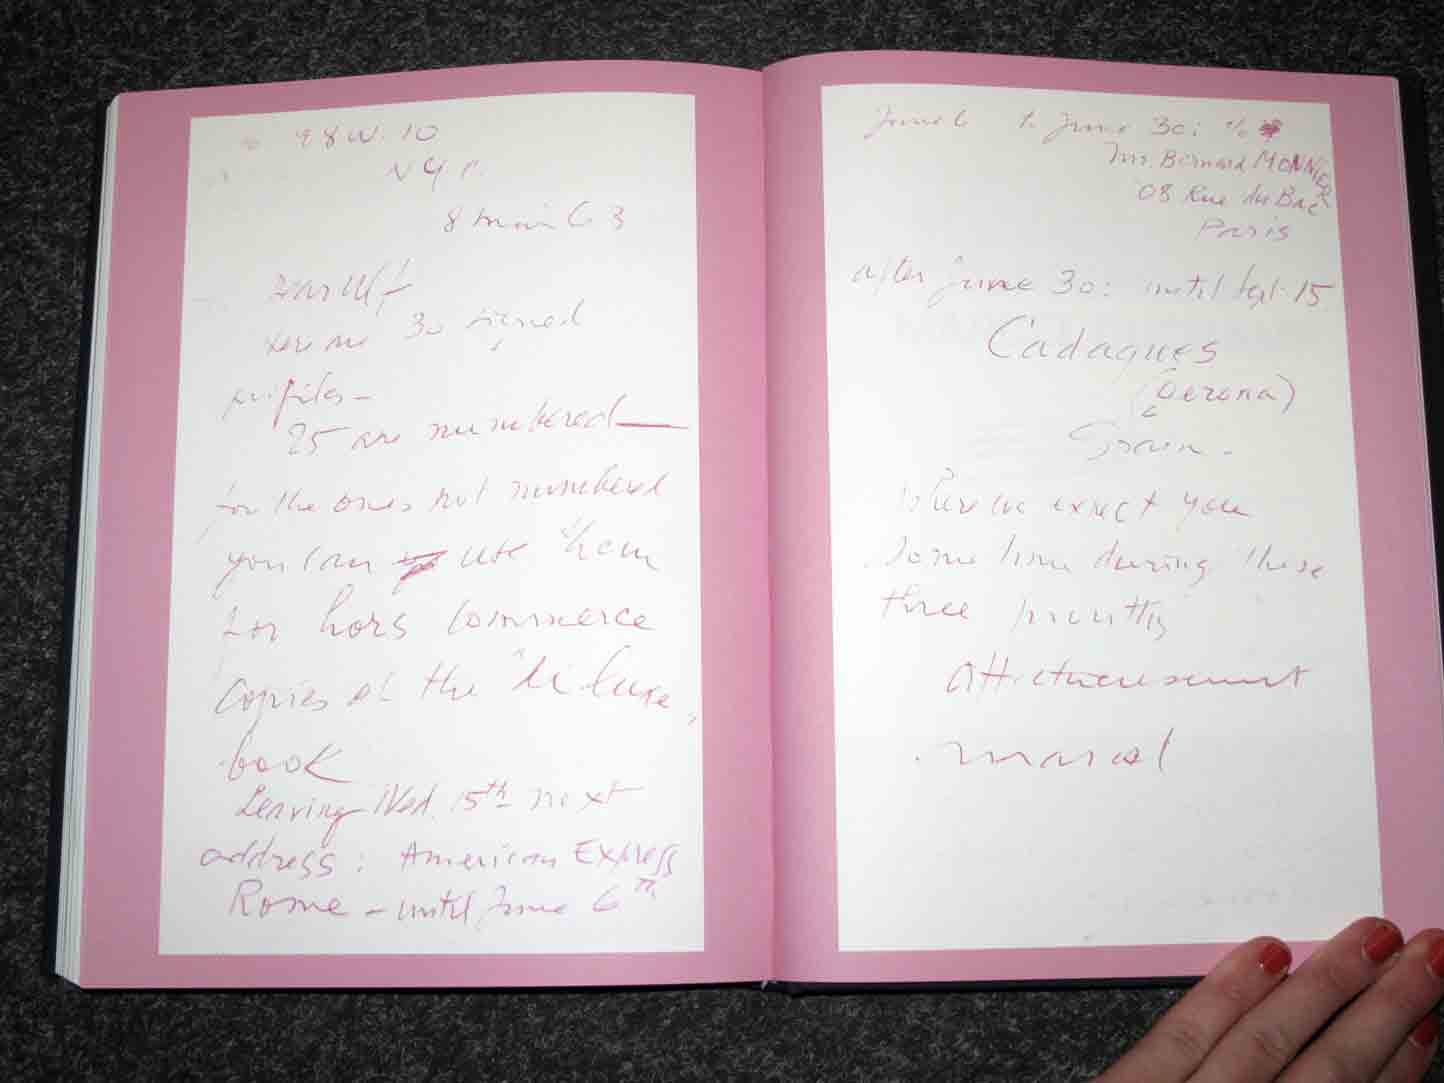 28 W. 10
N.Y.C.
8 mai 63
Dear Ulf
Here are 30 signed
profiles -
25 are numbered —
for the ones not numbered
you can use them
for hors commerce
copies of the "de luxe"
book
Leaving Wed. 15th next
address : American Express
Rome - until June 6th
June 6 to June 30 : c/o
Mr. Bernard MONNIER
08 Rue du Bac
Paris
after June 30 : until Sept. 15
Cadaques
(Gerona)
Spain -
Where we expect you
some time during these
three months
affectueusement
Marcel